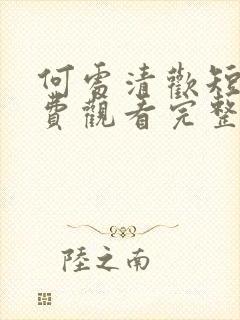 何處清歡短
費觀看完整
陸之南